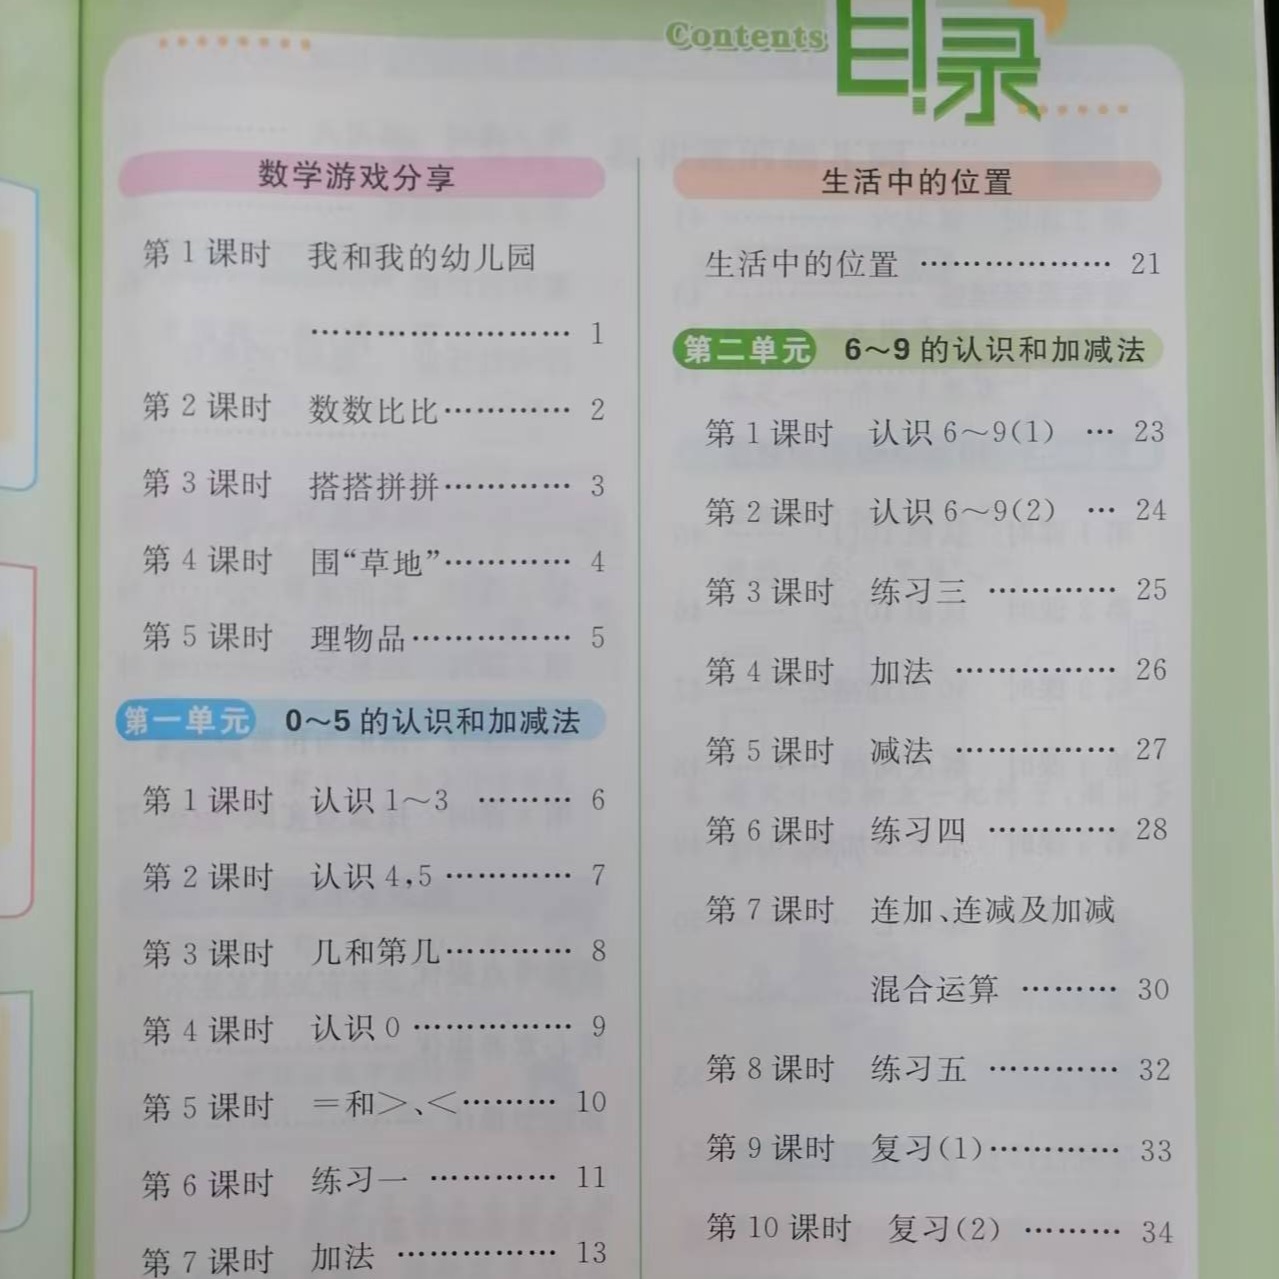 Contents 目录
数学游戏分享
第1课时 我和我的幼儿园
…………………… 1
第2课时 数数比比………… 2
第3课时 搭搭拼拼………… 3
第4课时 围“草地”………… 4
第5课时 理物品…………… 5
第一单元 0～5的认识和加减法
第1课时 认识1～3 ……… 6
第2课时 认识4,5 ………… 7
第3课时 几和第几………… 8
第4课时 认识0 …………… 9
第5课时 =和>、<……… 10
第6课时 练习一 ………… 11
第7课时 加法 …………… 13
生活中的位置
生活中的位置 ……………… 21
第二单元 6～9的认识和加减法
第1课时 认识6～9(1) … 23
第2课时 认识6～9(2) … 24
第3课时 练习三 ………… 25
第4课时 加法 …………… 26
第5课时 减法 …………… 27
第6课时 练习四 ………… 28
第7课时 连加、连减及加减
混合运算 ……… 30
第8课时 练习五 ………… 32
第9课时 复习(1)………… 33
第10课时 复习(2) ……… 34